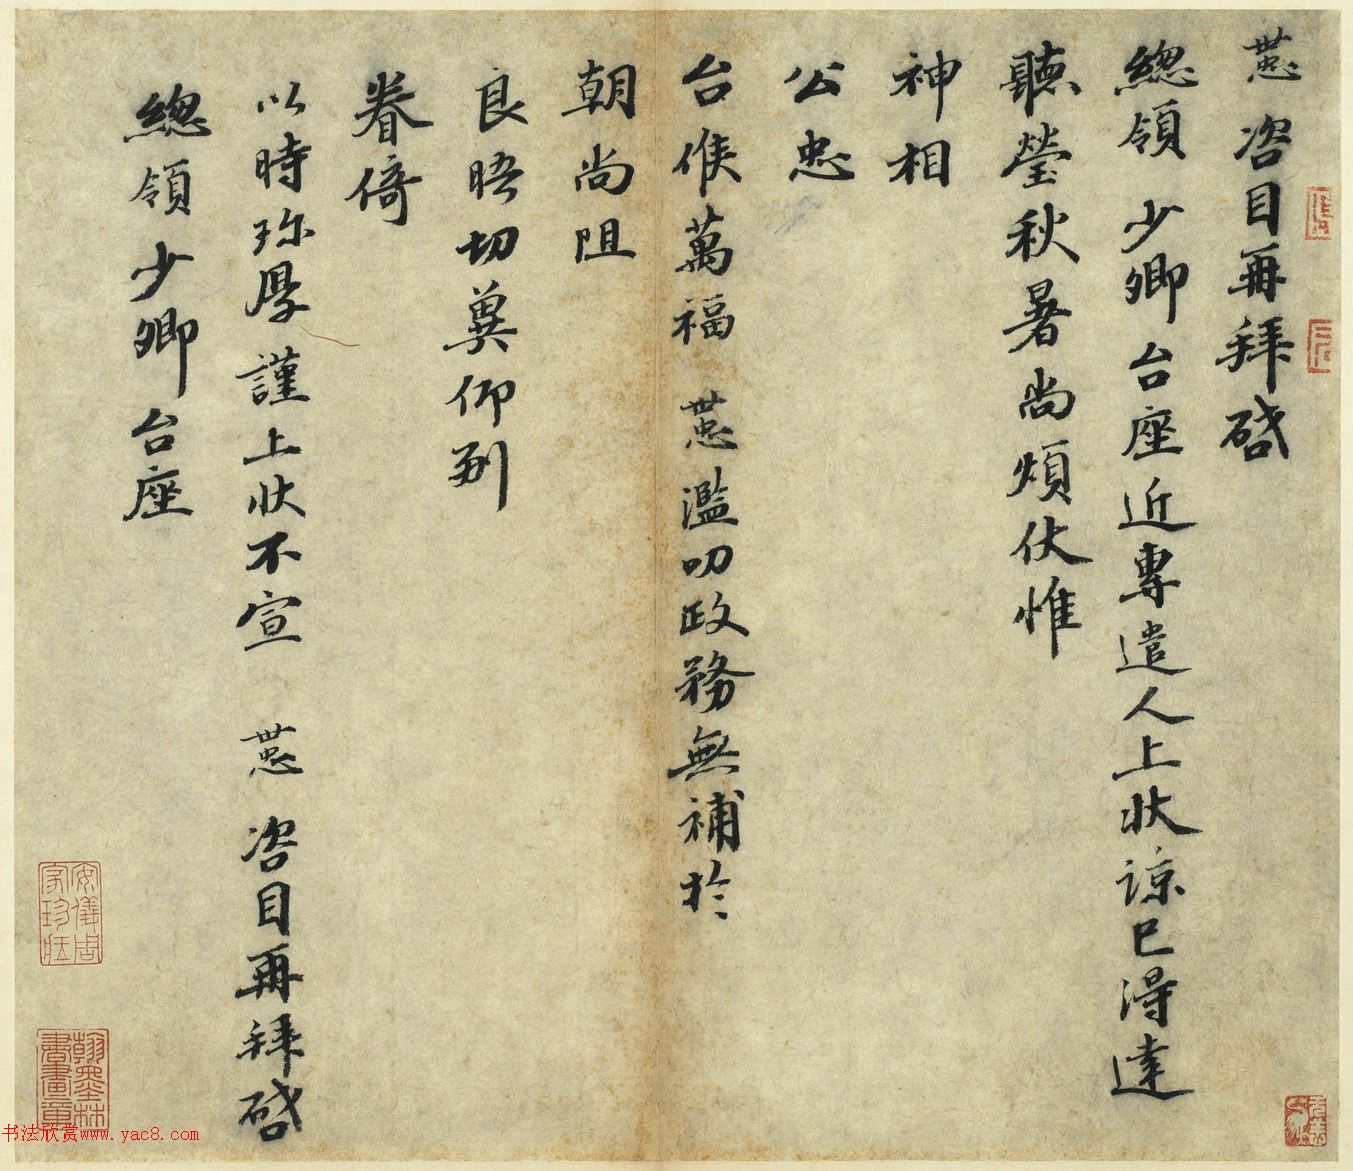 咨目再拜啓
總領少卿台座近專遣人上狀諒已得達
聽瑩秋暑尚煩伏惟
神相
公忠
台候萬福 濫叨政務無補於
朝尚阻
良晤切冀仰副
眷倚
以時珎厚謹上狀不宣 咨目再拜啓
總領少卿台座
安儀周家珍藏
翰墨林書畫章
书法欣赏www.yac8.com